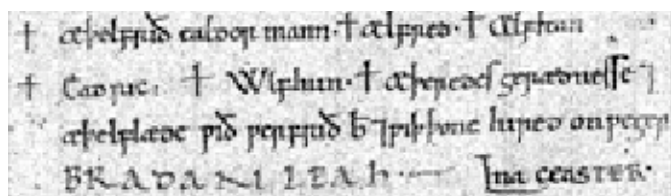 † æþelfrið ealdor mann · † ælfred · † Ælfhun
† Eadric. † Wlfhun · † æþeredes gerædnesse ⁊
æþelflæde ƿið ƿerfrið b ⁊ ƿiþ þone hired on ƿeger
BRADAN LEAH · ceaster ·